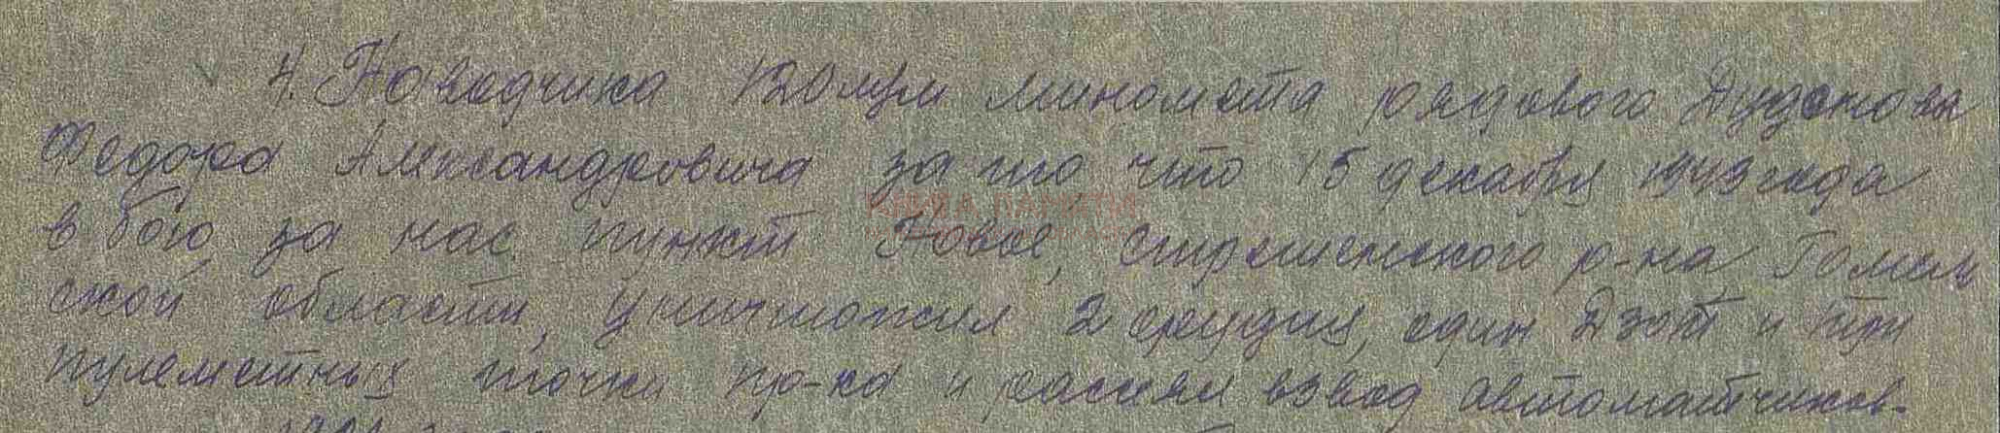 4. Наводчика 120 м/м миномета рядового Дуденкова
Федора Александровича за то что 15 декабря 1943 года
в бою за нас. пункт Новое, стрешенского р-на, Гомель
ской области, уничтожил 2 орудия, один Дзот и три
пулеметных точки пр-ка и рассеял взвод автоматчиков.